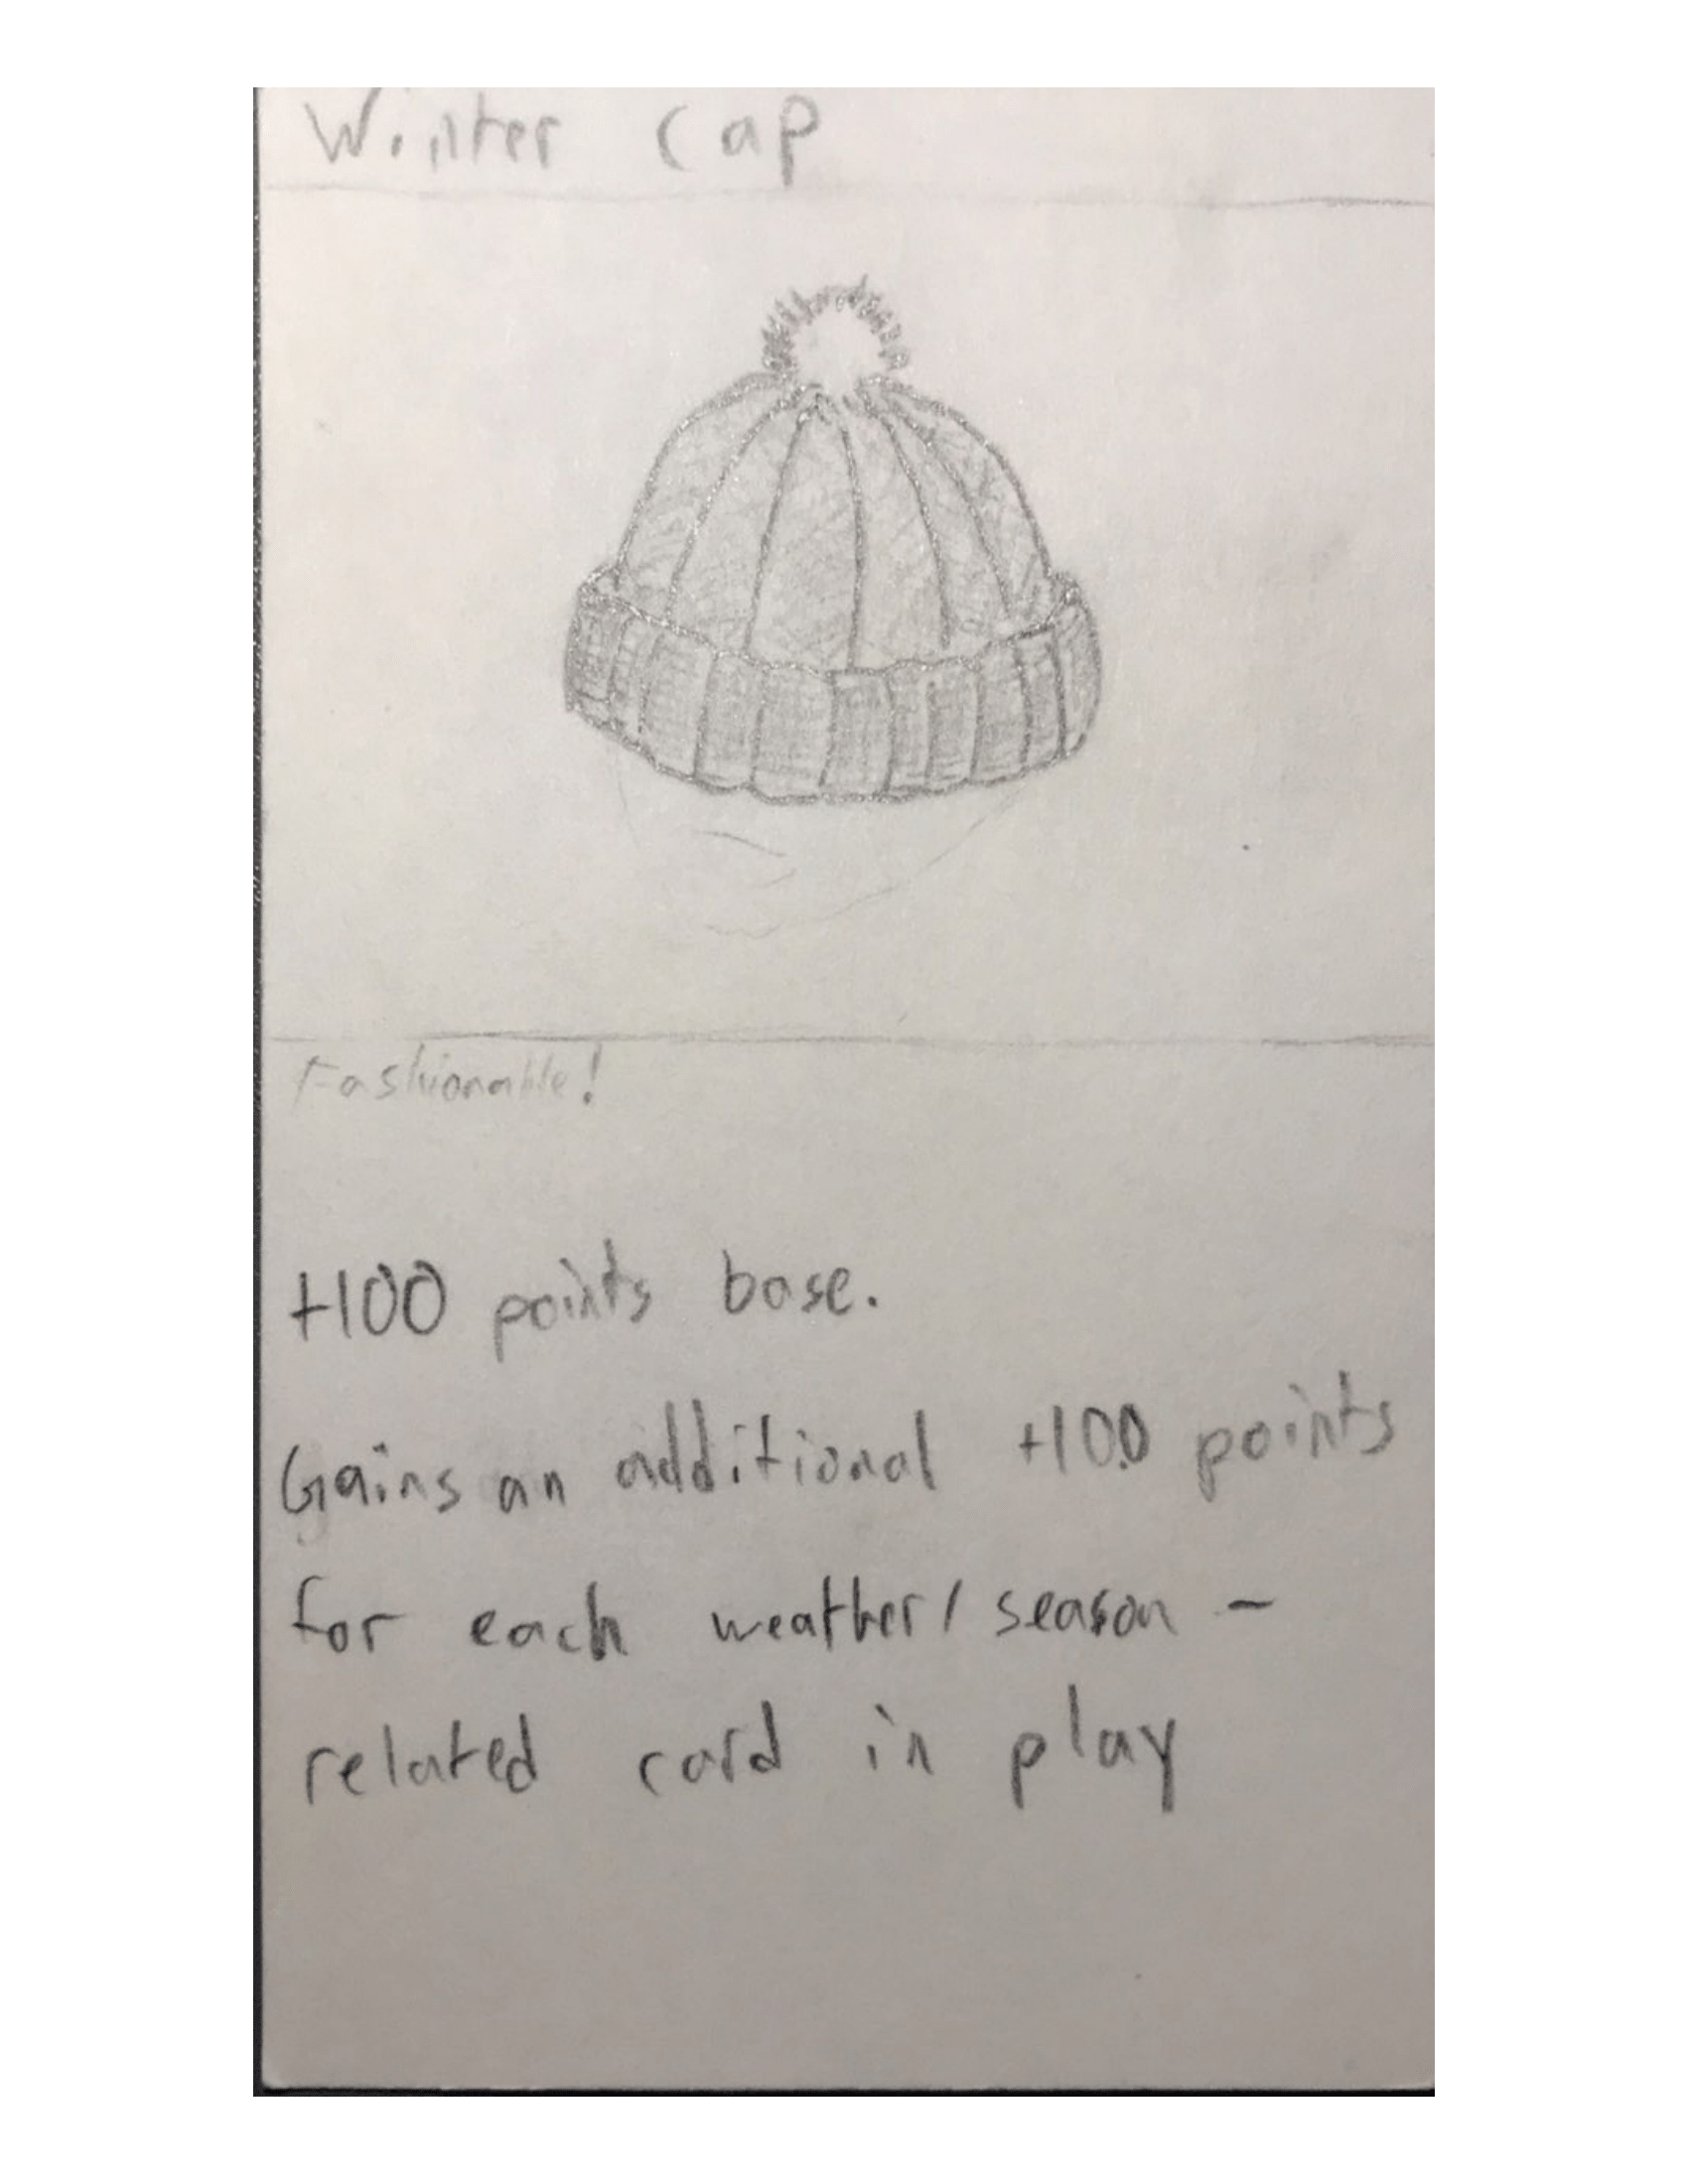 Winter cap
Fashionable!
+100 points base.
Gains an additional +100 points
for each weather/season-
related card in play